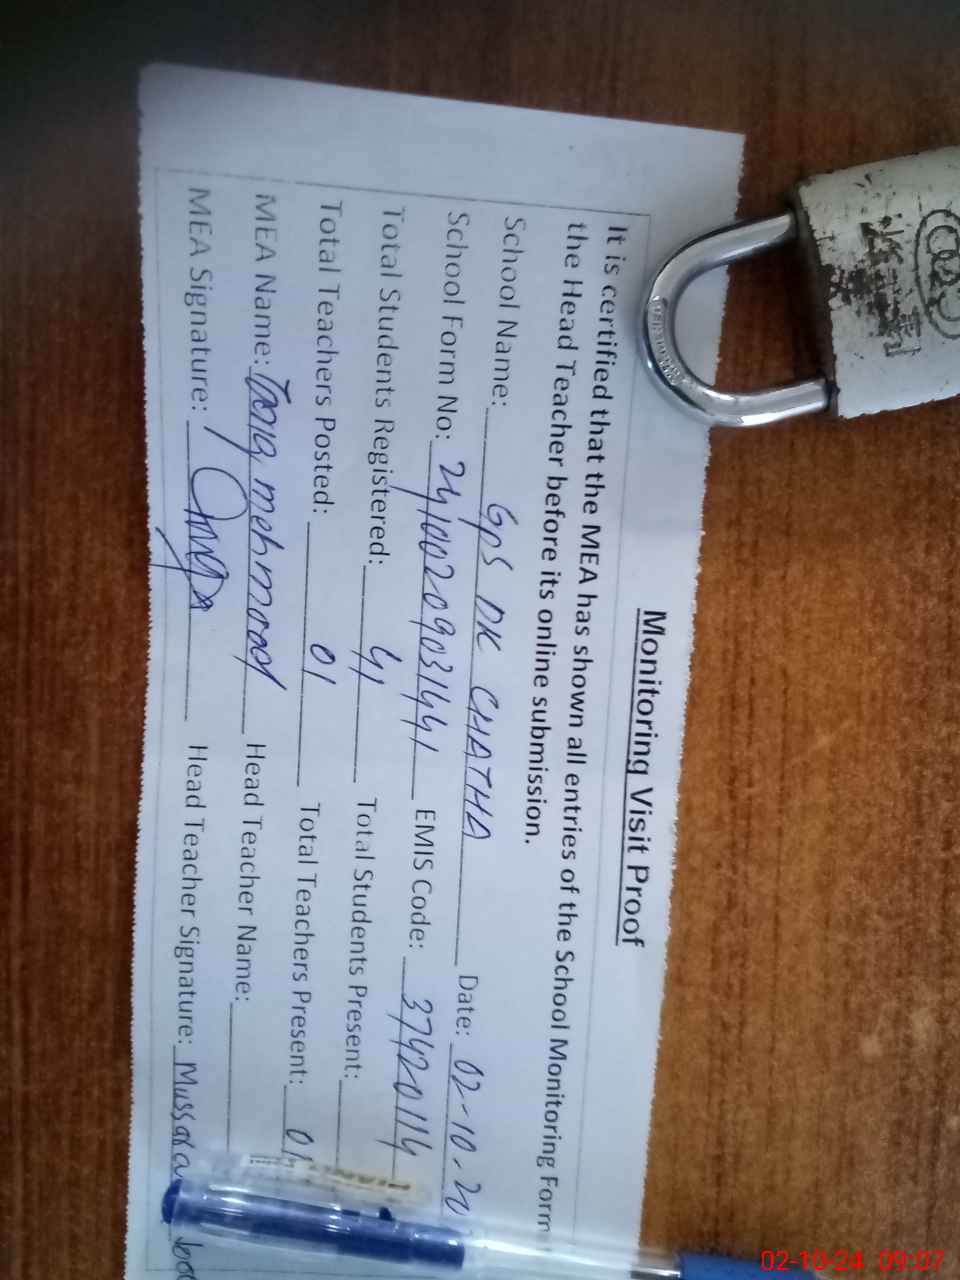 Monitoring Visit Proof
It is certified that the MEA has shown all entries of the School Monitoring Form
the Head Teacher before its online submission.
School Name: GPS DK CHATHA Date: 02-10-20
School Form No: 24100209031441 EMIS Code: 37420114
Total Students Registered: 41 Total Students Present:
Total Teachers Posted: 01 Total Teachers Present: 01
MEA Name: Tariq mehmood Head Teacher Name:
MEA Signature: Head Teacher Signature:
02-10-24 09:07